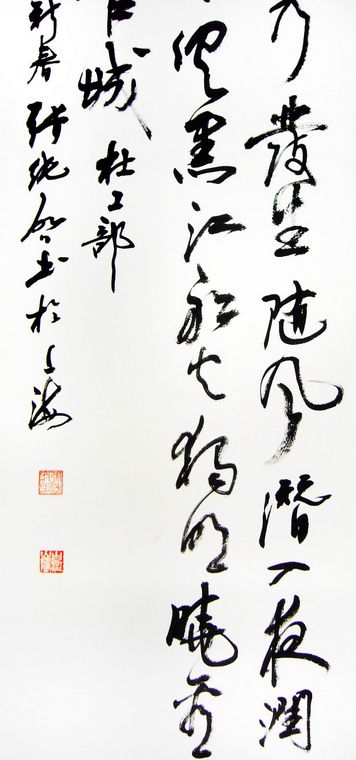 乃發生随風潛入夜潤
俱黑江船火獨明曉看
官城 杜工部
新春 書於上海